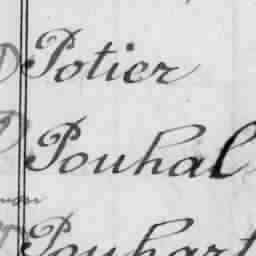 Potier
Pouhal
Pouhart